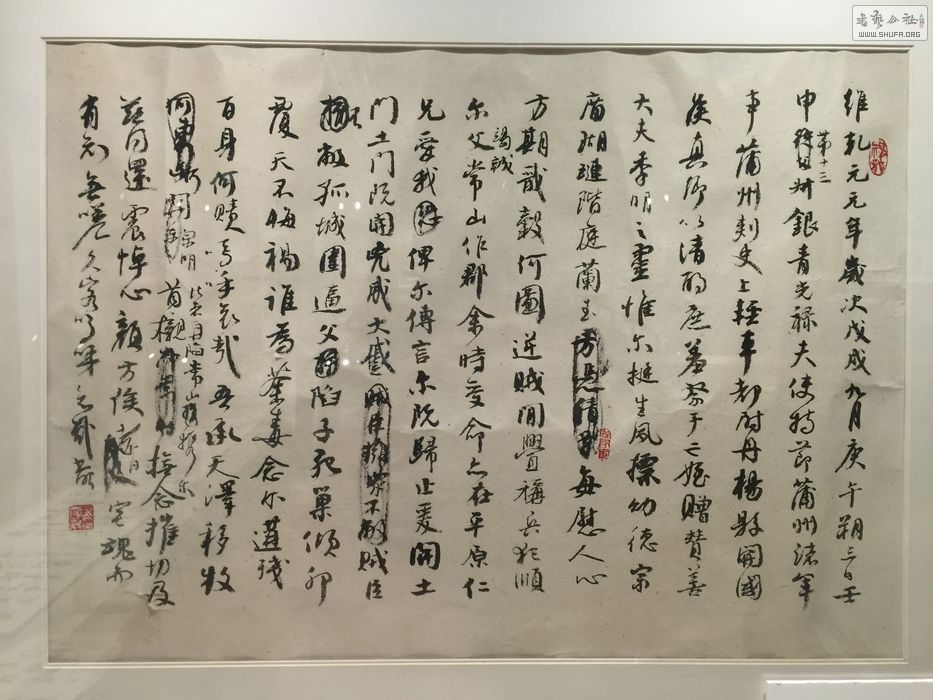 維乾元元年歲次戊戌九月庚午朔三日壬
申第十三叔銀青光祿夫使持節蒲州諸軍
事蒲州刺史上輕車都尉丹楊縣開國
侯真卿以清酌庶羞祭于亡姪贈贊善
大夫季明之靈惟尔挺生夙標幼德宗
廟瑚璉階庭蘭玉每慰人心
方期戩穀何圖逆賊間釁稱兵犯順
尔父竭誠常山作郡余時受命亦在平原仁
兄愛我俾尔傳言尔既歸止爰開土
門土門既開兇威大蹙賊臣
擁救孤城圍逼父陷子死巢傾卵
覆天不悔禍誰為荼毒念尔遘殘
百身何贖嗚乎哀哉吾承天澤移牧
河關泉明比者再陷常山攜尔首櫬及茲同還撫念摧切
震悼心顏方俟遠日卜尔幽宅魂而
有知無嗟久客嗚呼哀哉尚饗
書藝公社
WWW.SHUFA.ORG